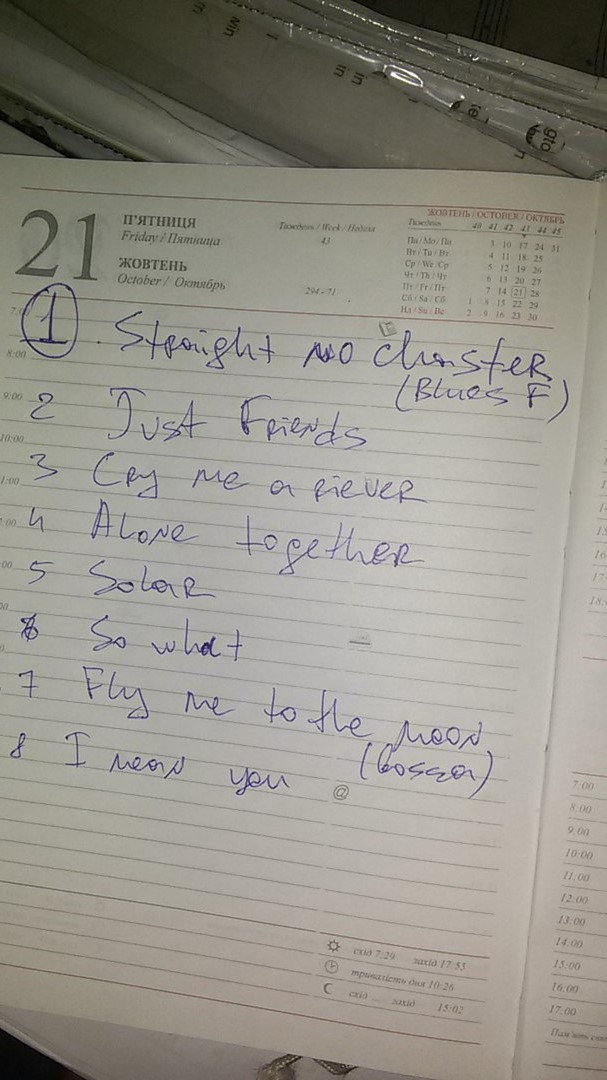 21
П'ЯТНИЦЯ
Friday / Пятница
ЖОВТЕНЬ
October / Октябрь
Тиждень / Week / Неделя
43
294 - 71
ЖОВТЕНЬ / OCTOBER / ОКТЯБРЬ
Тиждень 40 41 42 43 44 45
Пн / Mo / Пн 3 10 17 24 31
Вт / Tu / Вт 4 11 18 25
Ср / We / Ср 5 12 19 26
Чт / Th / Чт 6 13 20 27
Пт / Fr / Пт 7 14 21 28
Сб / Sa / Сб 1 8 15 22 29
Нд / Su / Вс 2 9 16 23 30
1. Straight no chaster
(Blues F)
2 Just Friends
3 Cry me a riever
4 Alone together
5 Solar
6 So what
7 Fly me to the moon
(bossa)
8 I mean you
@
8:00
9:00
10:00
схід 7:29 захід 17:55
тривалість дня 10:26
схід ... захід 15:02
7:00
8:00
9:00
10:00
11:00
12:00
13:00
14:00
15:00
16:00
17:00